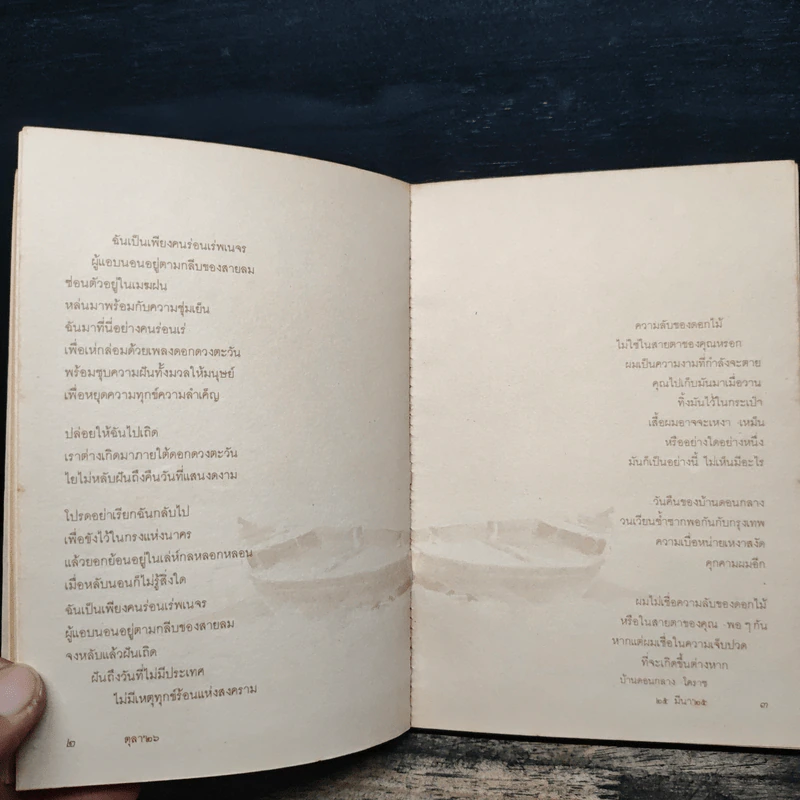 ฉันเป็นเพียงคนร่อนเร่พเนจร
ผู้แอบนอนอยู่ตามกลีบของสายลม
ซ่อนตัวอยู่ในเมฆฝน
หล่นมาพร้อมกับความชุ่มเย็น
ฉันมาที่นี่อย่างคนร่อนเร่
เพื่อเห่กล่อมด้วยเพลงดอกดวงตะวัน
พร้อมชุบความฝันทั้งมวลให้มนุษย์
เพื่อหยุดความทุกข์ความลำเค็ญ
ปล่อยให้ฉันไปเถิด
เราต่างเกิดมาภายใต้ดอกดวงตะวัน
ไยไม่หลับฝันถึงคืนวันที่แสนงดงาม
โปรดอย่าเรียกฉันกลับไป
เพื่อขังไว้ในกรงแห่งนาคร
แล้วยอกย้อนอยู่ในเล่ห์กลหลอกหลอน
เมื่อหลับนอนก็ไม่รู้สิ่งใด
ฉันเป็นเพียงคนร่อนเร่พเนจร
ผู้แอบนอนอยู่ตามกลีบของสายลม
จงหลับแล้วฝันเถิด
ฝันถึงวันที่ไม่มีประเทศ
ไม่มีเหตุทุกข์ร้อนแห่งสงคราม
๒ ตุลา'๒๖
ความลับของดอกไม้
ไม่ใช่ในสายตาของคุณหรอก
ผมเป็นความงามที่กำลังจะตาย
คุณไปเก็บมันมาเมื่อวาน
ทิ้งมันไว้ในกระเป๋า
เสื้อผมอาจจะเหงา -เหม็น
หรืออย่างใดอย่างหนึ่ง
มันก็เป็นอย่างนี้ ไม่เห็นมีอะไร
วันคืนของบ้านดอนกลาง
วนเวียนซ้ำซากพอกันกับกรุงเทพ
ความเบื่อหน่ายเหงาสงัด
คุกคามผมอีก
ผมไม่เชื่อความลับของดอกไม้
หรือในสายตาของคุณ -พอ ๆ กัน
หากแต่ผมเชื่อในความเจ็บปวด
ที่จะเกิดขึ้นต่างหาก
บ้านดอนกลาง โคราช
๒๕ มีนา'๒๕ ๓